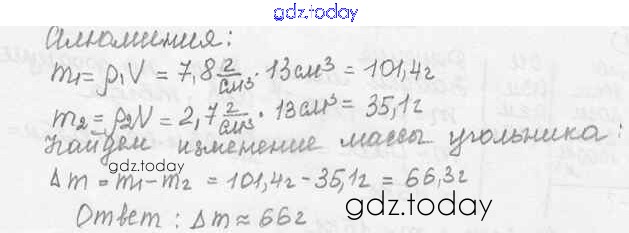 gdz.today
алюминия:
m₁=ρ₁V = 7,8 г/см³ · 13см³ = 101,4г
m₂=ρ₂V = 2,7 г/см³ · 13см³ = 35,1г
Найдем изменение массы угольника:
gdz.today
Δm = m₁-m₂ = 101,4г-35,1г = 66,3г
gdz.today
Ответ: Δm ≈ 66г
gdz.today